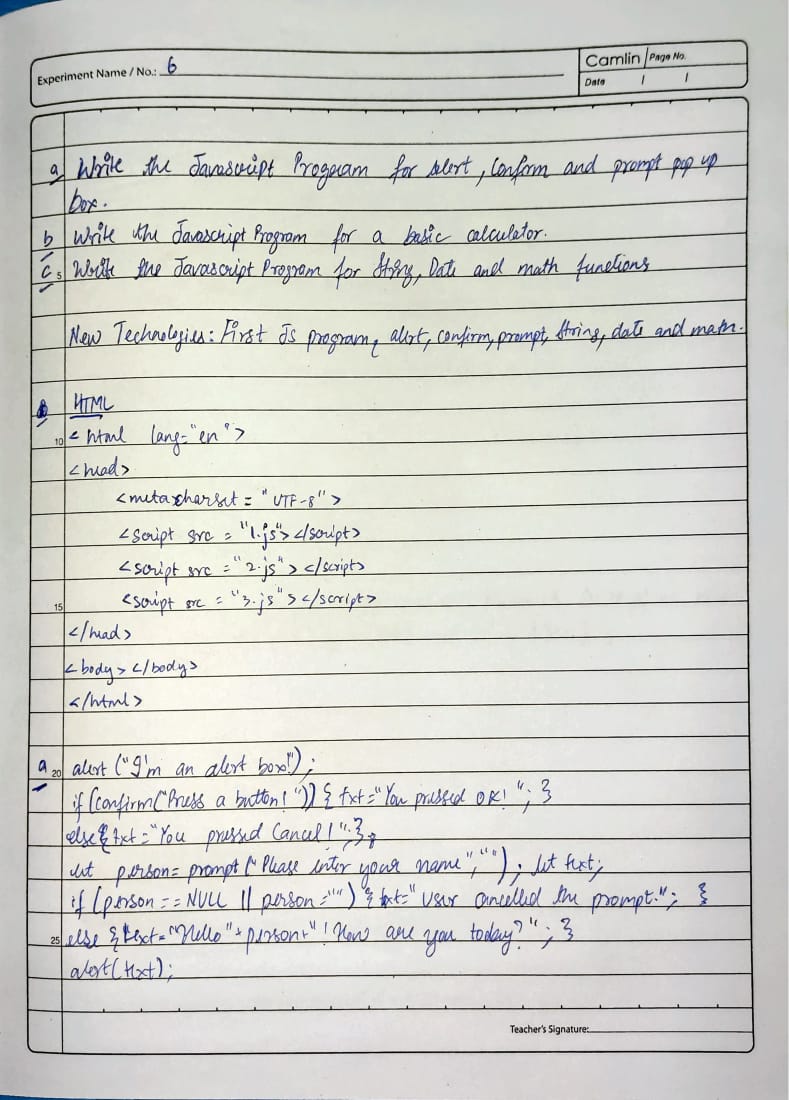 Experiment Name / No.: 6
Camlin Page No.
Date / /
a Write the Javascript Program for alert, Confirm and prompt pop up
box.
b Write the Javascript Program for a basic calculator.
c 5 Write the Javascript Program for String, Date and math functions
New Technologies: First Js program, alert, confirm, prompt, String, date and math.
HTML
10 < html lang="en">
<head>
<meta charset = "UTF-8">
<script src = "1.js"></script>
<script src = "2.js"></script>
15 <script src = "3.js"></script>
</head>
<body></body>
</html>
a 20 alert ("I'm an alert box!");
if (confirm("Press a button!")) { txt="You pressed OK!"; }
else{ txt="You pressed Cancel!"; }
let person= prompt ("Please enter your name",""); let text;
if (person == NULL || person ="") { txt=" User cancelled the prompt."; }
25 else { text="Hello"+person+"! How are you today?"; }
alert(text);
Teacher's Signature: